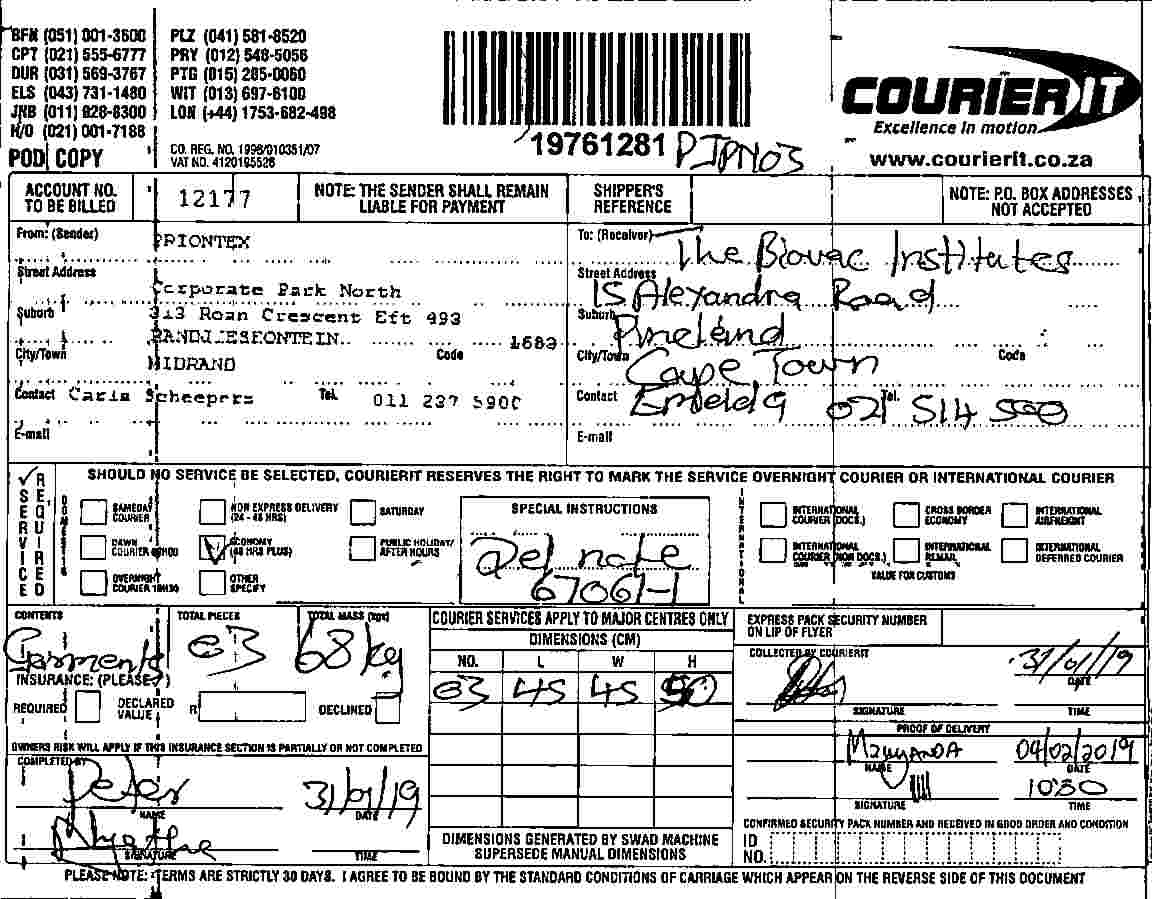 BFN (051) 001-3600 PLZ (041) 581-8520
CPT (021) 555-6777 PRY (012) 548-5056
DUR (031) 569-3767 PTG (015) 285-0060
ELS (043) 731-1480 WIT (013) 697-6100
JNB (011) 928-8300 LON (+44) 1753-682-498
H/O (021) 001-7188
POD COPY
CO. REG. NO. 1998/010351/07
VAT NO. 4120195526
19761281
COURIER IT
Excellence in motion
www.courierit.co.za
ACCOUNT NO. TO BE BILLED 12177
NOTE: THE SENDER SHALL REMAIN LIABLE FOR PAYMENT
SHIPPER'S REFERENCE
NOTE: P.O. BOX ADDRESSES NOT ACCEPTED
From: (Sender) PRIONTEX
Street Address Corporate Park North
Suburb 313 Roan Crescent Eft 493
RANDJIESFONTEIN 1683
City/Town MIDRAND Code
Contact Carla Scheepers Tel. 011 237 5900
E-mail
To: (Receiver) The Biovac Institutes
Street Address 15 Alexandra Road
Suburb Pineland
City/Town Cape Town Code
Contact Tel. 021 514 500
E-mail
SERVICE REQUIRED
SHOULD NO SERVICE BE SELECTED, COURIERIT RESERVES THE RIGHT TO MARK THE SERVICE OVERNIGHT COURIER OR INTERNATIONAL COURIER
DOMESTIC
SAMEDAY COURIER
NON EXPRESS DELIVERY (24 - 48 HRS)
SATURDAY
DAWN COURIER
ECONOMY (48 HRS PLUS)
PUBLIC HOLIDAY/ AFTER HOURS
OVERNIGHT COURIER 10H30
OTHER SPECIFY
SPECIAL INSTRUCTIONS
Del note
67061-1
INTERNATIONAL
INTERNATIONAL COURIER (DOCS.)
CROSS BORDER ECONOMY
INTERNATIONAL AIRFREIGHT
INTERNATIONAL COURIER (NON DOCS.)
INTERNATIONAL REMAIL
INTERNATIONAL DEFERRED COURIER
VALUE FOR CUSTOMS
CONTENTS Garments
TOTAL PIECES 03
TOTAL MASS (kgs) 68kg
INSURANCE: (PLEASE ✓)
REQUIRED
DECLARED VALUE R
DECLINED
OWNERS RISK WILL APPLY IF THIS INSURANCE SECTION IS PARTIALLY OR NOT COMPLETED
COMPLETED BY
Peter 31/01/19
NAME DATE
SIGNATURE TIME
COURIER SERVICES APPLY TO MAJOR CENTRES ONLY
DIMENSIONS (CM)
NO. L W H
03 45 45 50
DIMENSIONS GENERATED BY SWAD MACHINE SUPERSEDE MANUAL DIMENSIONS
EXPRESS PACK SECURITY NUMBER ON LIP OF FLYER
COLLECTED BY COURIERIT
31/01/19
DATE
SIGNATURE TIME
PROOF OF DELIVERY
04/02/2019
NAME DATE
1030
SIGNATURE TIME
CONFIRMED SECURITY PACK NUMBER AND RECEIVED IN GOOD ORDER AND CONDITION
ID NO.
PLEASE NOTE: TERMS ARE STRICTLY 30 DAYS. I AGREE TO BE BOUND BY THE STANDARD CONDITIONS OF CARRIAGE WHICH APPEAR ON THE REVERSE SIDE OF THIS DOCUMENT